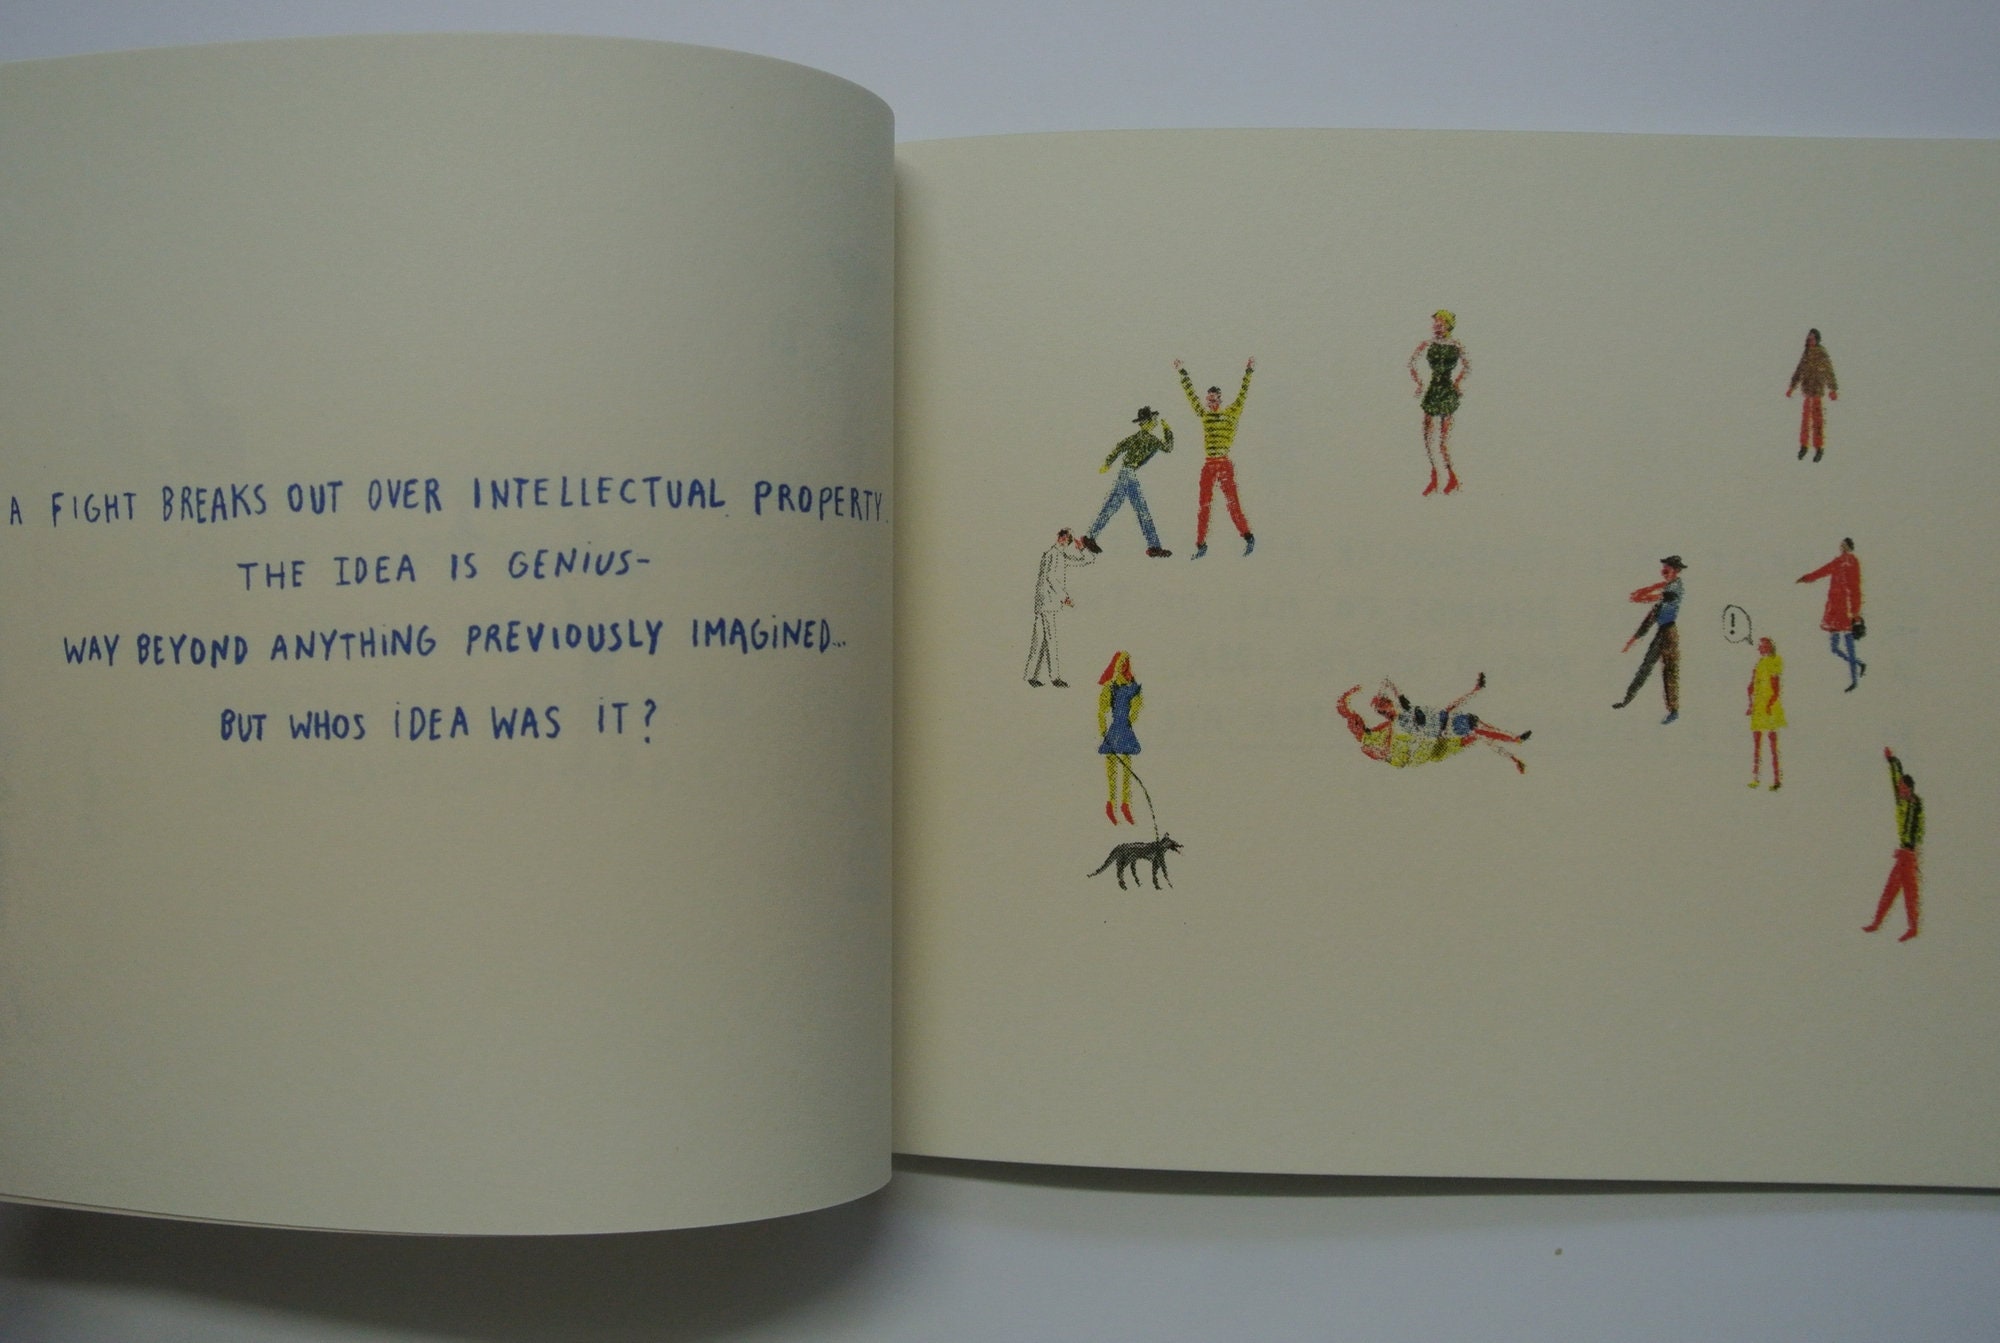 A FIGHT BREAKS OUT OVER INTELLECTUAL PROPERTY.
THE IDEA IS GENIUS-
WAY BEYOND ANYTHING PREVIOUSLY IMAGINED...
BUT WHOS IDEA WAS IT?
!